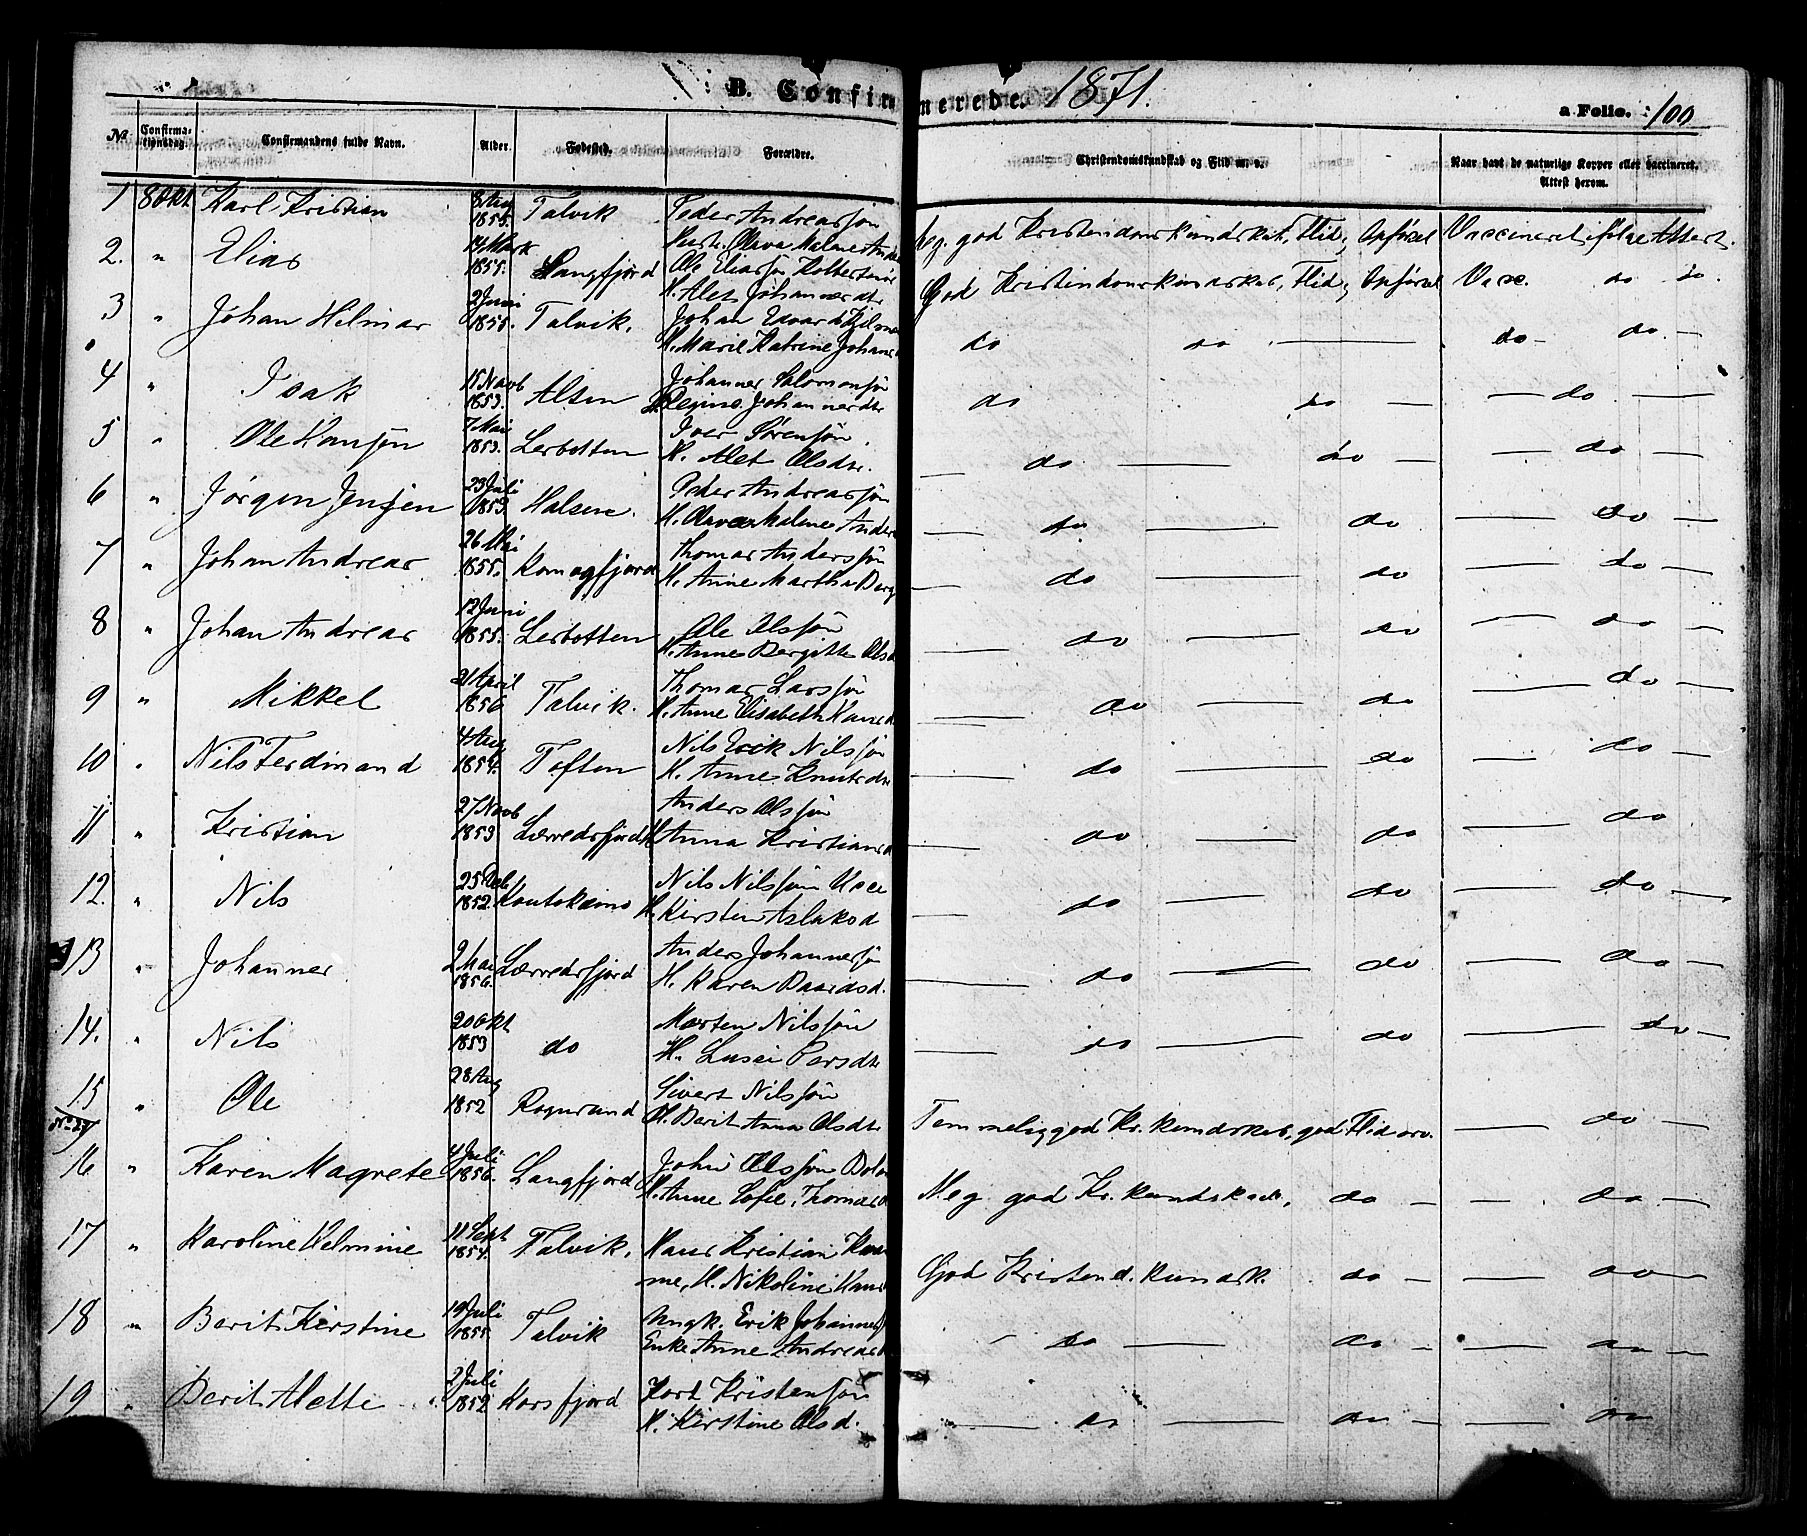 B. Confirmerede. 1871.
a Folio. 100
No Confirmationsdag. Confirmandens fulde Navn. Alder. Fødested. Forældre. Christendomskundskab og Flid m. v. Naar havt de naturlige Kopper eller vaccineret. Attest herom.
1 8 Okt. Karl Kristian 8 Aug 1855. Talvik Peder Andreassjøn
Hustr. Olava Malene Ander Meg. god Kristendomskundskab, Flid, Opførsel Vaccineret ifølge Attest.
2. " Elias 14 Mark 1855. Langfjord Ole Eliassjøn
H. Alet Johannesdtr God Kristendomskundskab, Flid, Opførsel Vacc. do do
3 " Johan Hilmar 2 Juni 1855. Talvik. Johan Edvard Hilmar
H. Marie Katrine Johans do do — do - do -
4 " Isak 15 Novb 1853. Alten Johannes Salomonsjø
H. Regine Johannesdtr do do — — do —
5 " Ole Hansjøn 7 Mai 1853. Lerbotten Iver Sørensjøn
H. Alet Olsdtr. — do — do — — do —
6 " Jørgen Jensjen 23 Juli 1853 Halsene. Peder Andreassjøn
H. Olava Malene Ander — do — do — do —
7 " Johan Andreas 26 Mai 1855. Komagfjord Thomas Anderssjøn
H. Anne Martha Berg — do — do — do —
8 " Johan Andreas 12 Juni 1855. Lerbotten Ole Olssjøn
H. Anne Bergitte Olsd — do — do — do —
9 " Mikkel 21 April 1856 Talvik. Thomas Larssjøn
H. Anne Elisabeth Hansd — do — do — do —
10 " Nils Ferdinand 4 Aug 1854. Toften Nils Erik Nilssjøn
H. Anne Knutsdtr — do — do — do —
11 " Kristian 27 Novb 1853 Lærredsfjord Anders Olssjøn
H. Anna Kristiansd — do — do — do
12. " Nils 25 Deb 1852. Koutokeino Nils Nilssjøn
H. Kirsten Aslaksd — do — do — do —
13 " Johannes 2 Mai 1856. Lærredsfjord Anders Johannessjøn
H. Karen Baardsd. — do — do — do —
14. " Nils 20 Okt 1853 do Morten Nilssjøn
H. Lusei Persdtr — do — do — do —
15 " Ole 28 Aug 1852 Rognsund Sivert Nilssjøn
H. Berit Anna Olsdtr Temmelig god Kr. kundskab, god Flid osv. — do —
16 " Karen Magrete 4 Juli 1856. Langfjord John Olssjøn
H. Anne Sofie Thomasd Meg god Kr. kundskab, do — — do —
17 " Karoline Helmine 11 Sept 1854. Talvik. Hans Kristian
me, H. Nikoline Hans God Kristend. kundsk. do — — do —
18 " Berit Kirstine 19 Juli 1855. Talvik Ungk. Erik Johannes
Enke Anne Andreasd — do — do — — do —
19 " Berit Alette 2 Juli 1852 Korsfjord Kort Kristensjøn
H. Kirstine Olsd. — do — do — — do